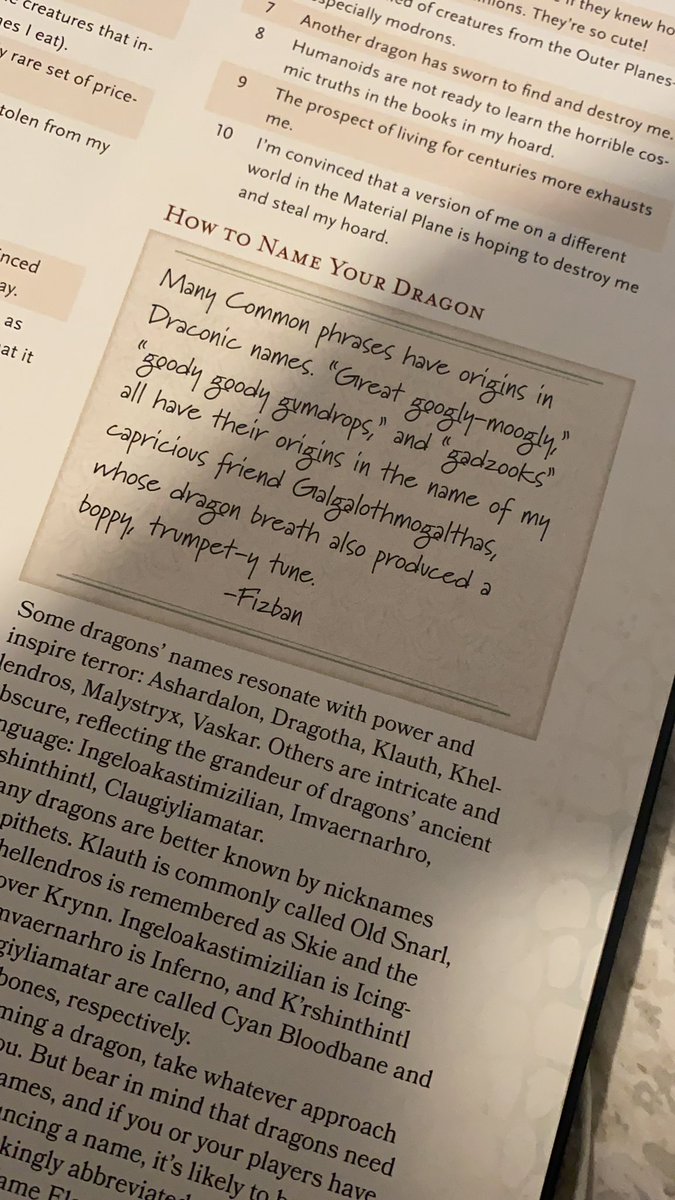 creatures that in-
es I eat).
y rare set of price-
tolen from my
inced
ay.
as
at it
if they knew ho
nions. They're so cute!
7 ed of creatures from the Outer Planes—
specially modrons.
8 Another dragon has sworn to find and destroy me.
9 Humanoids are not ready to learn the horrible cos-
mic truths in the books in my hoard.
10 The prospect of living for centuries more exhausts
me.
I'm convinced that a version of me on a different
world in the Material Plane is hoping to destroy me
and steal my hoard.
How to Name Your Dragon
Many Common phrases have origins in
Draconic names. "Great googly-moogly,"
"goody goody gumdrops," and "gadzooks"
all have their origins in the name of my
capricious friend Galgalothmogalthas,
whose dragon breath also produced a
boppy, trumpet-y tune.
-Fizban
Some dragons' names resonate with power and
inspire terror: Ashardalon, Dragotha, Klauth, Khel-
lendros, Malystryx, Vaskar. Others are intricate and
bscure, reflecting the grandeur of dragons' ancient
nguage: Ingeloakastimizilian, Imvaernarhro,
shinthintl, Claugiyliamatar.
any dragons are better known by nicknames
pithets. Klauth is commonly called Old Snarl,
hellendros is remembered as Skie and the
over Krynn. Ingeloakastimizilian is Icing-
mvaernarhro is Inferno, and K'rshinthintl
giyliamatar are called Cyan Bloodbane and
bones, respectively.
ming a dragon, take whatever approach
ou. But bear in mind that dragons need
ames, and if you or your players have
uncing a name, it's likely to b
kingly abbreviated